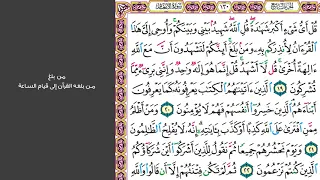 من بلغ
من بلغه القرآن إلى قيام الساعة
الجزء السابع
١٣٠
سورة الأنعام
قُلْ أَيُّ شَيْءٍ أَكْبَرُ شَهَادَةً قُلِ اللَّهُ شَهِيدٌ بَيْنِي وَبَيْنَكُمْ وَأُوحِيَ إِلَيَّ هَذَا
الْقُرْءَانُ لِأُنذِرَكُم بِهِ وَمَن بَلَغَ أَئِنَّكُمْ لَتَشْهَدُونَ أَنَّ مَعَ اللَّهِ
ءَالِهَةً أُخْرَى قُل لَّا أَشْهَدُ قُلْ إِنَّمَا هُوَ إِلَهٌ وَاحِدٌ وَإِنَّنِي بَرِيءٌ مِّمَّا
تُشْرِكُونَ ١٩ الَّذِينَ ءَاتَيْنَاهُمُ الْكِتَابَ يَعْرِفُونَهُ كَمَا يَعْرِفُونَ
أَبْنَاءَهُمُ الَّذِينَ خَسِرُوا أَنفُسَهُمْ فَهُمْ لَا يُؤْمِنُونَ ٢٠ وَمَنْ أَظْلَمُ
مِمَّنِ افْتَرَى عَلَى اللَّهِ كَذِبًا أَوْ كَذَّبَ بِآيَاتِهِ إِنَّهُ لَا يُفْلِحُ الظَّالِمُونَ
٢١ وَيَوْمَ نَحْشُرُهُمْ جَمِيعًا ثُمَّ نَقُولُ لِلَّذِينَ أَشْرَكُوا أَيْنَ شُرَكَاؤُكُمُ
الَّذِينَ كُنتُمْ تَزْعُمُونَ ٢٢ ثُمَّ لَمْ تَكُن فِتْنَتُهُمْ إِلَّا أَن قَالُوا وَاللَّهِ